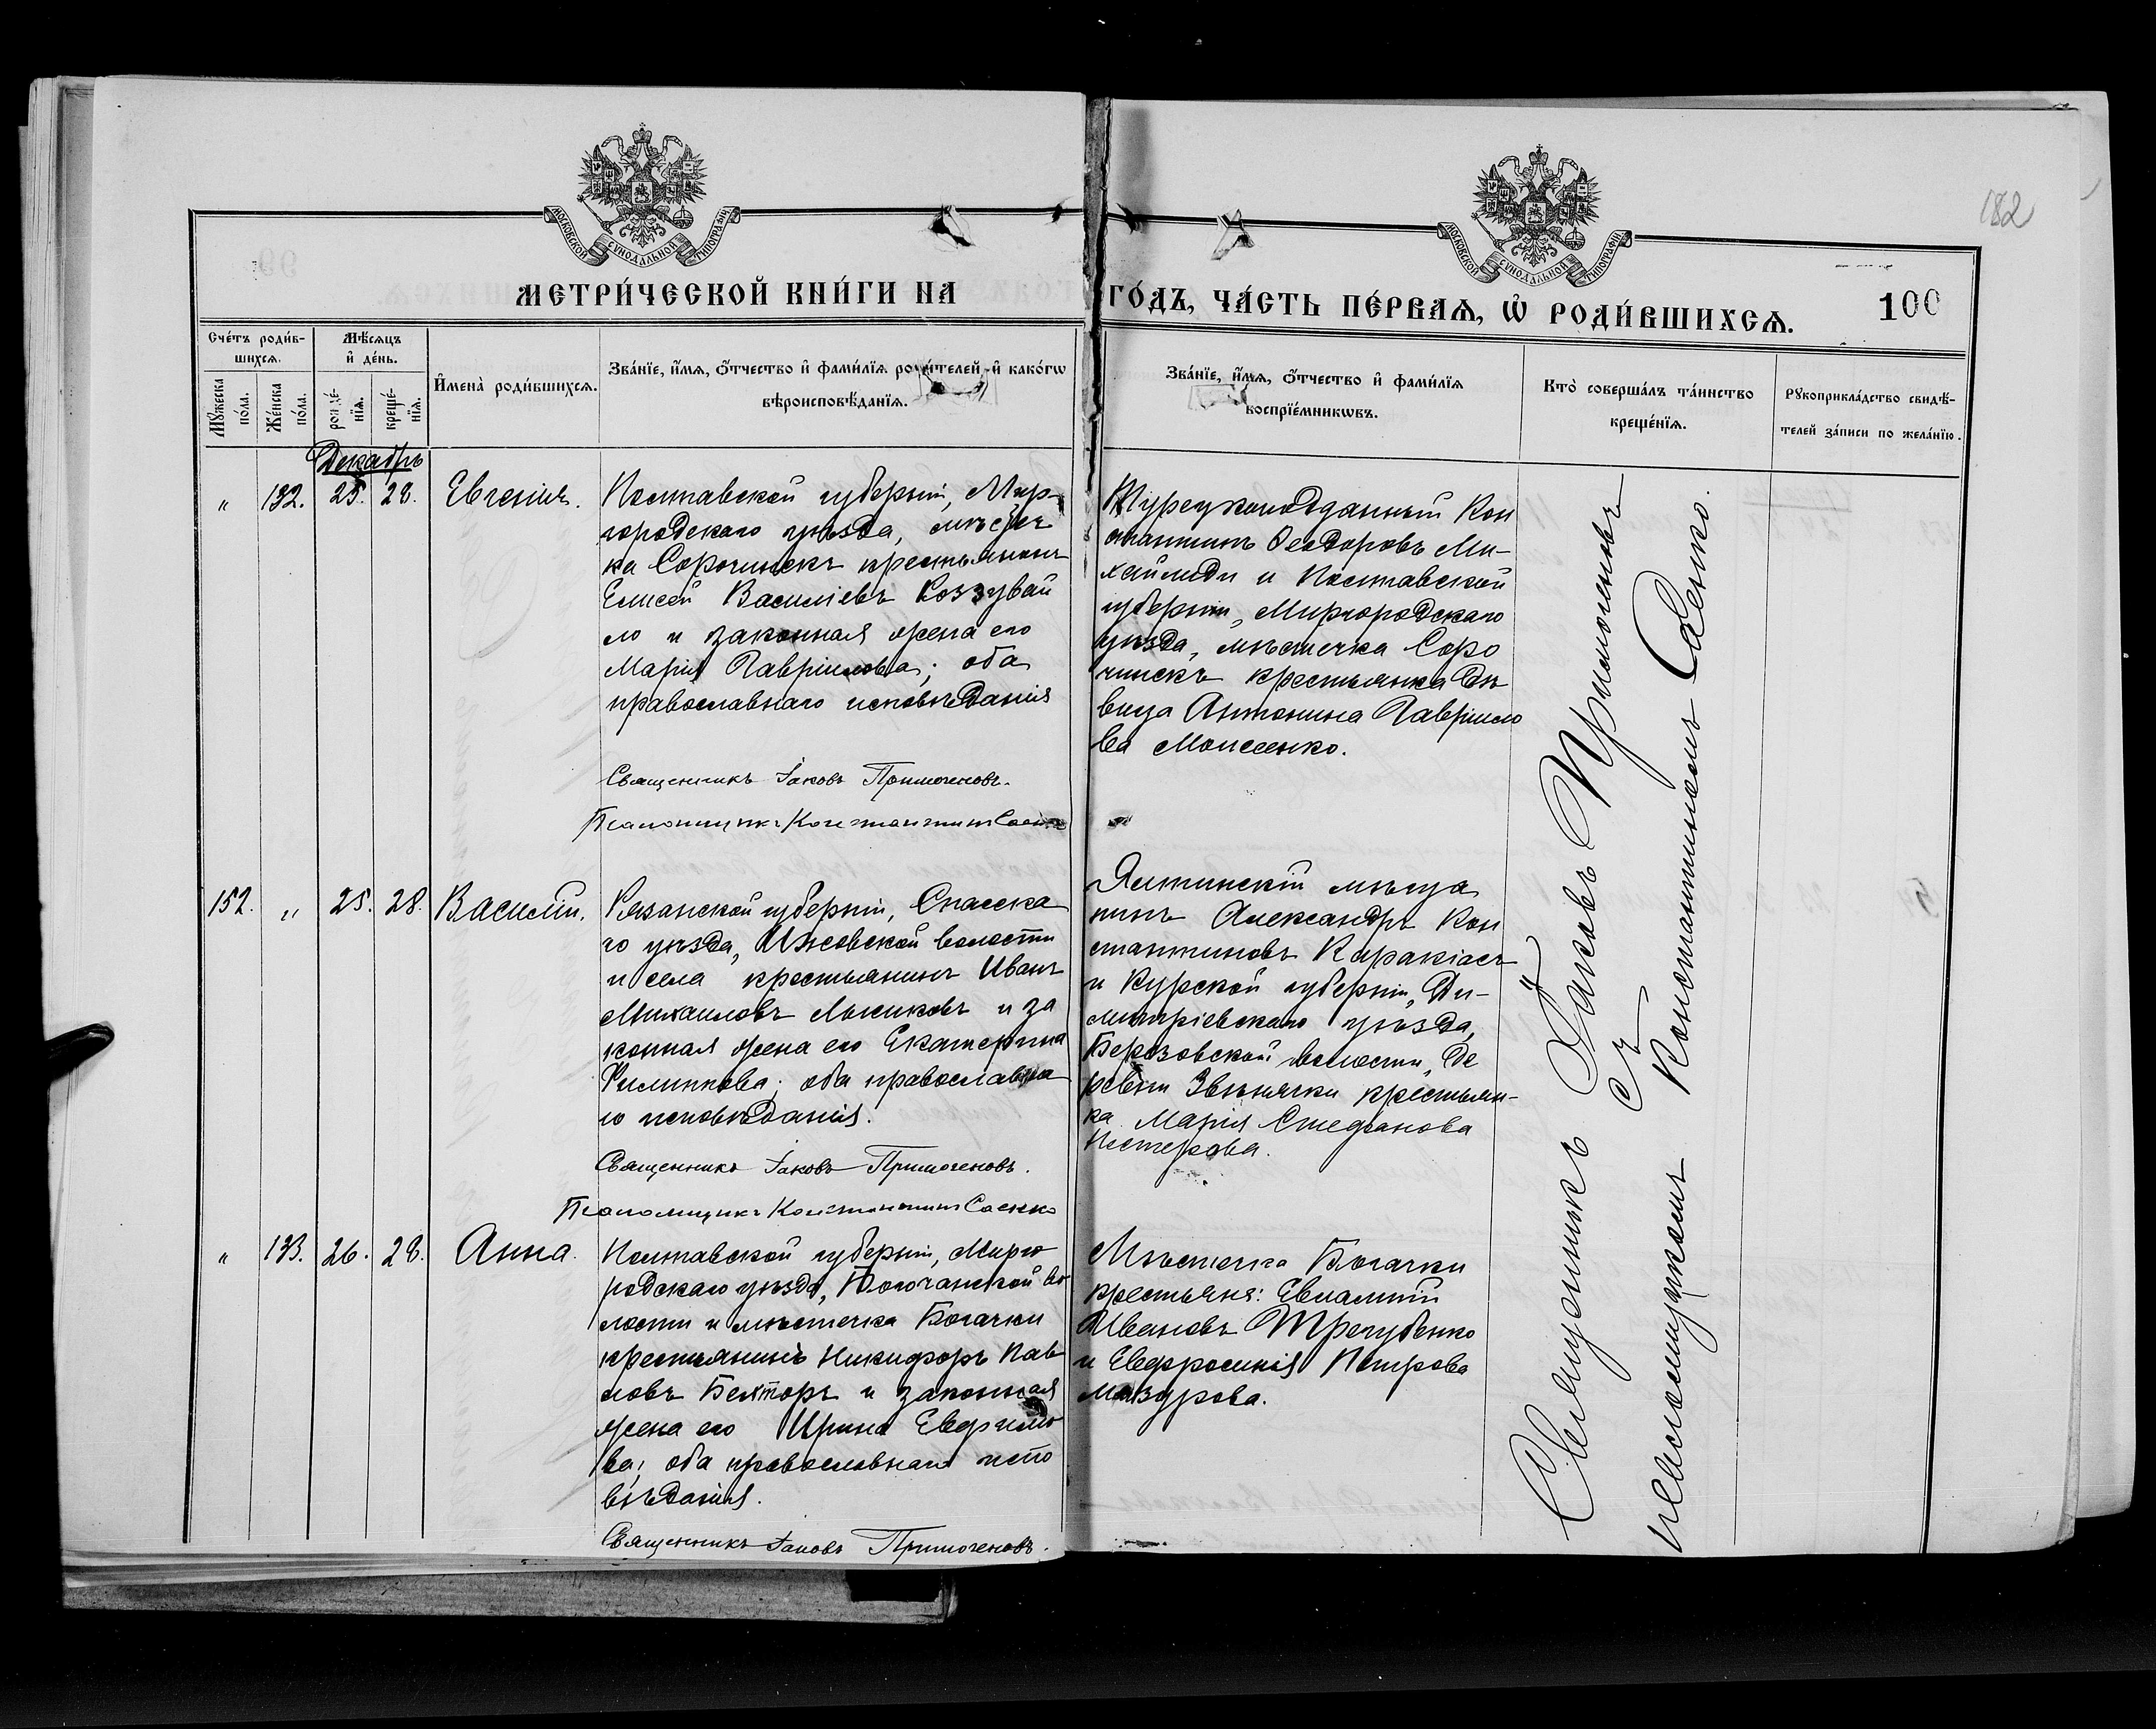 МОСКОВСКОЙ СѴНОДАЛЬНОЙ ТИПОГРАФІИ
МОСКОВСКОЙ СѴНОДАЛЬНОЙ ТИПОГРАФІИ
182
МЕТРИ́ЧЕСКОЙ КНИ́ГИ НА ГО́ДЪ, ЧА́СТЬ ПЕ́РВАѦ, Ѡ҆ РОДИ́ВШИХСѦ.
100
Сче́тъ роди́в-
шихсѧ.
Мꙋ́жеска по́ла.
Же́нска по́ла.
Мѣ́сѧцъ
и҆ де́нь.
рожде́-
нїѧ.
креще́-
нїѧ.
И҆мена̀ роди́вшихсѧ.
Зва́нїе, и҆́мѧ, ѻ҆́тчество и҆ фами́лїѧ роди́телей, и҆ како́гѡ
вѣроисповѣ́данїѧ.
Зва́нїе, и҆́мѧ, ѻ҆́тчество и҆ фами́лїѧ
воспрїе́мникѡвъ.
Кто̀ соверша́лъ та́инство
креще́нїѧ.
Рꙋкоприкла́дство свидѣ́-
телей за́писи по жела́нїю.
Декабрь
„ 132. 25. 28. Евгенія.
Полтавской губерніи, Мир-
городскаго уѣзда, мѣстеч
ка Сорочинскъ крестьянинъ
Елисей Василіевъ Коззувай
ло и законная жена его
Марія Гавріилова; оба
православнаго исповѣданія
Священникъ Іаковъ Примогеновъ.
Псаломщикъ Константинъ Саенко
Турецкоподданный Кон
стантинъ Ѳеодоровъ Ми-
хайлиди и Полтавской
губерніи, Миргородскаго
уѣзда, мѣстечка Соро
чинскъ крестьянка дѣ
вица Антонина Гаврiило
ва Моисеенко.
152. „ 25. 28. Василій.
Рязанской губерніи, Спасска
го уѣзда, Ижевской волости
и села крестьянинъ Иванъ
Михаиловъ и за
конная жена его Екатерина
Филиппова; оба православна
го исповѣданія.
Священникъ Іаковъ Примогеновъ.
Псаломщикъ Константинъ Саенко
Ялтинскій мѣща
нинъ Александръ Кон
стантиновъ Киракіасъ
и Курской губерніи, Ди-
митріевскаго уѣзда,
Березовской волости, де
ревни Звѣнячки крестьян-
ка Марія Стефанова
Нестерова.
„ 133. 26. 28. Анна.
Полтавской губерніи, Мирго
родскаго уѣзда, Богочанской во
лости и мѣстечка Богачки
крестьянинъ Никифоръ Пав
ловъ Бехторъ и законная
жена его Ирина Евфимо
ва; оба православнаго испо
вѣданія.
Священникъ Іаковъ Примогеновъ.
Мѣстечка Богачки
крестьяне: Евламній
Ивановъ Трегубенко
и Евфросинія Петрова
Мазурова.
Священникъ Іаковъ Примогеновъ
съ
псаломщикомъ Константиномъ Саенко.